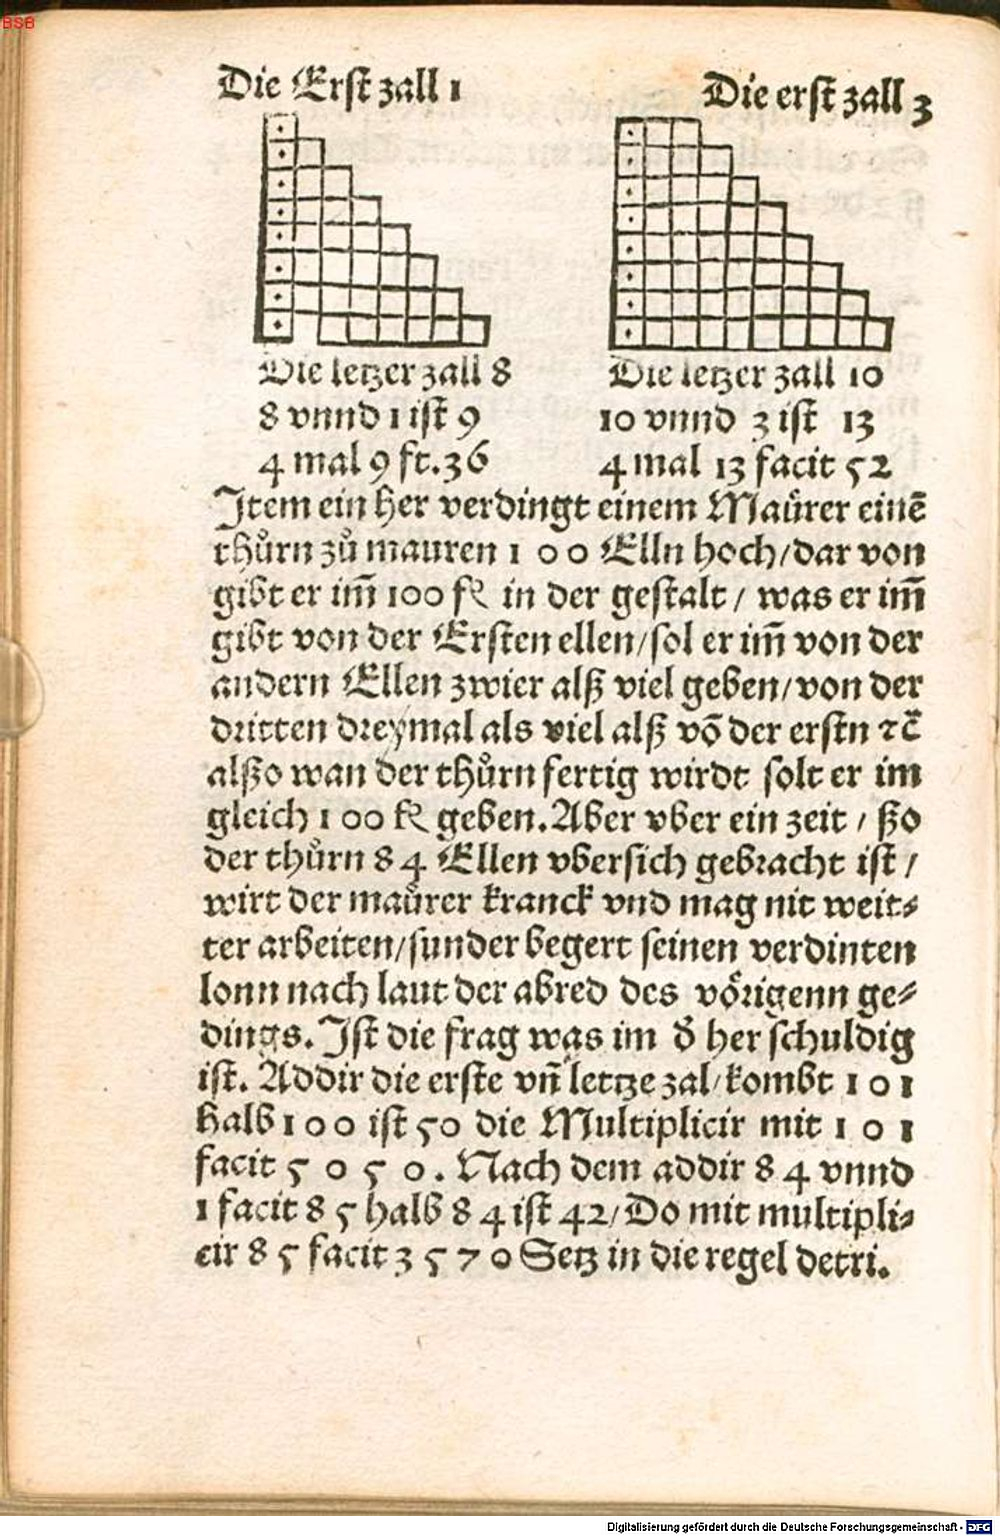 BSB
Die Erst zall 1
Die erst zall 3
Die letzer zall 8
Die letzer zall 10
8 vnnd 1 ist 9
10 vnnd 3 ist 13
4 mal 9 ft. 36
4 mal 13 facit 52
Item ein her verdingt einem Maůrer einē
thůrn zů mauren 1 0 0 Elln hoch/dar von
gibt er im̄ 100 fl in der gestalt / was er im̄
gibt von der Ersten ellen/sol er im̄ von der
andern Ellen zwier alß viel geben/von der
dritten dreymal als viel alß vō der erstn ⁊c̄
alßo wan der thůrn fertig wirdt solt er im
gleich 1 00 fl geben. Aber vber ein zeit / ßo
der thůrn 8 4 Ellen vbersich gebracht ist /
wirt der maůrer kranck vnd mag nit weit⸗
ter arbeiten/sunder begert seinen verdinten
lonn nach laut der abred des vöꝛigenn ge⸗
dings. Ist die frag was im d̕ her schuldig
ist. Addir die erste vn̄ letzte zal/kombt 1 0 1
halb 1 0 0 ist 50 die Multiplicir mit 1 0 1
facit 5 0 5 0. Nach dem addir 8 4 vnnd
1 facit 8 5 halb 8 4 ist 42/Do mit multipli⸗
cir 8 5 facit 3 5 7 0 Setz in die regel detri.
Digitalisierung gefördert durch die Deutsche Forschungsgemeinschaft - DFG